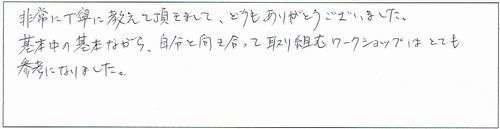 非常に丁寧に教えて頂きまして、どうもありがとうございました。
基本中の基本ながら、自分と向き合って取り組むワークショップはとても
参考になりました。